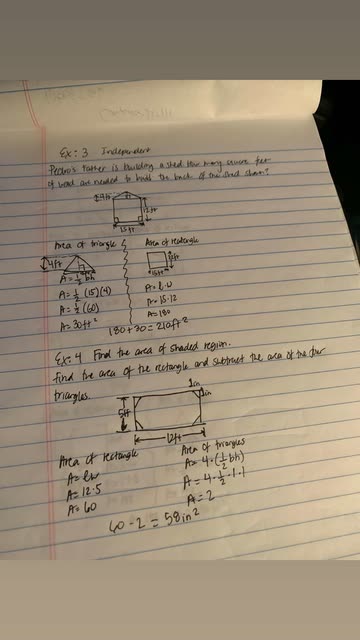 Ex: 3 Independent
Pedro's Father is building a shed. How many square feet
of wood are needed to build the back of the shed shown?
4ft
12ft
15ft
Area of triangle
Area of rectangle
4ft
12ft
15ft
A = 1/2 bh
A = 1/2 (15)(4)
A = 1/2 (60)
A = 30ft²
A = l·w
A = 15·12
A = 180
180 + 30 = 210ft²
Ex: 4 Find the area of shaded region.
Find the area of the rectangle and subtract the area of the four
triangles.
1in
1in
5ft
12ft
Area of rectangle
A = lw
A = 12·5
A = 60
Area of triangles
A = 4·(1/2 bh)
A = 4·1/2·1·1
A = 2
60 - 2 = 58in²